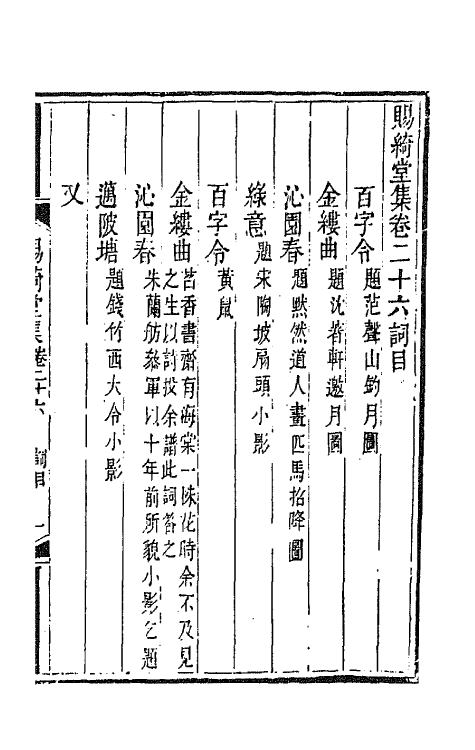 賜綺堂集卷二十六詞目
百字令題范聲山釣月圖
金縷曲題沈春軒邀月圖
沁園春題黙然道人畫匹馬招降圖
綠意題宋陶坡扇頭小影
百字令黃鼠
金縷曲苕香書齋有海棠一株花時余不及見
之生以詩投余譜此詞答之
沁園春朱蘭舫叅軍以十年前所貌小影乞題
邁陂塘題錢竹西大令小影
又
賜綺堂集卷二十六 詞目 一